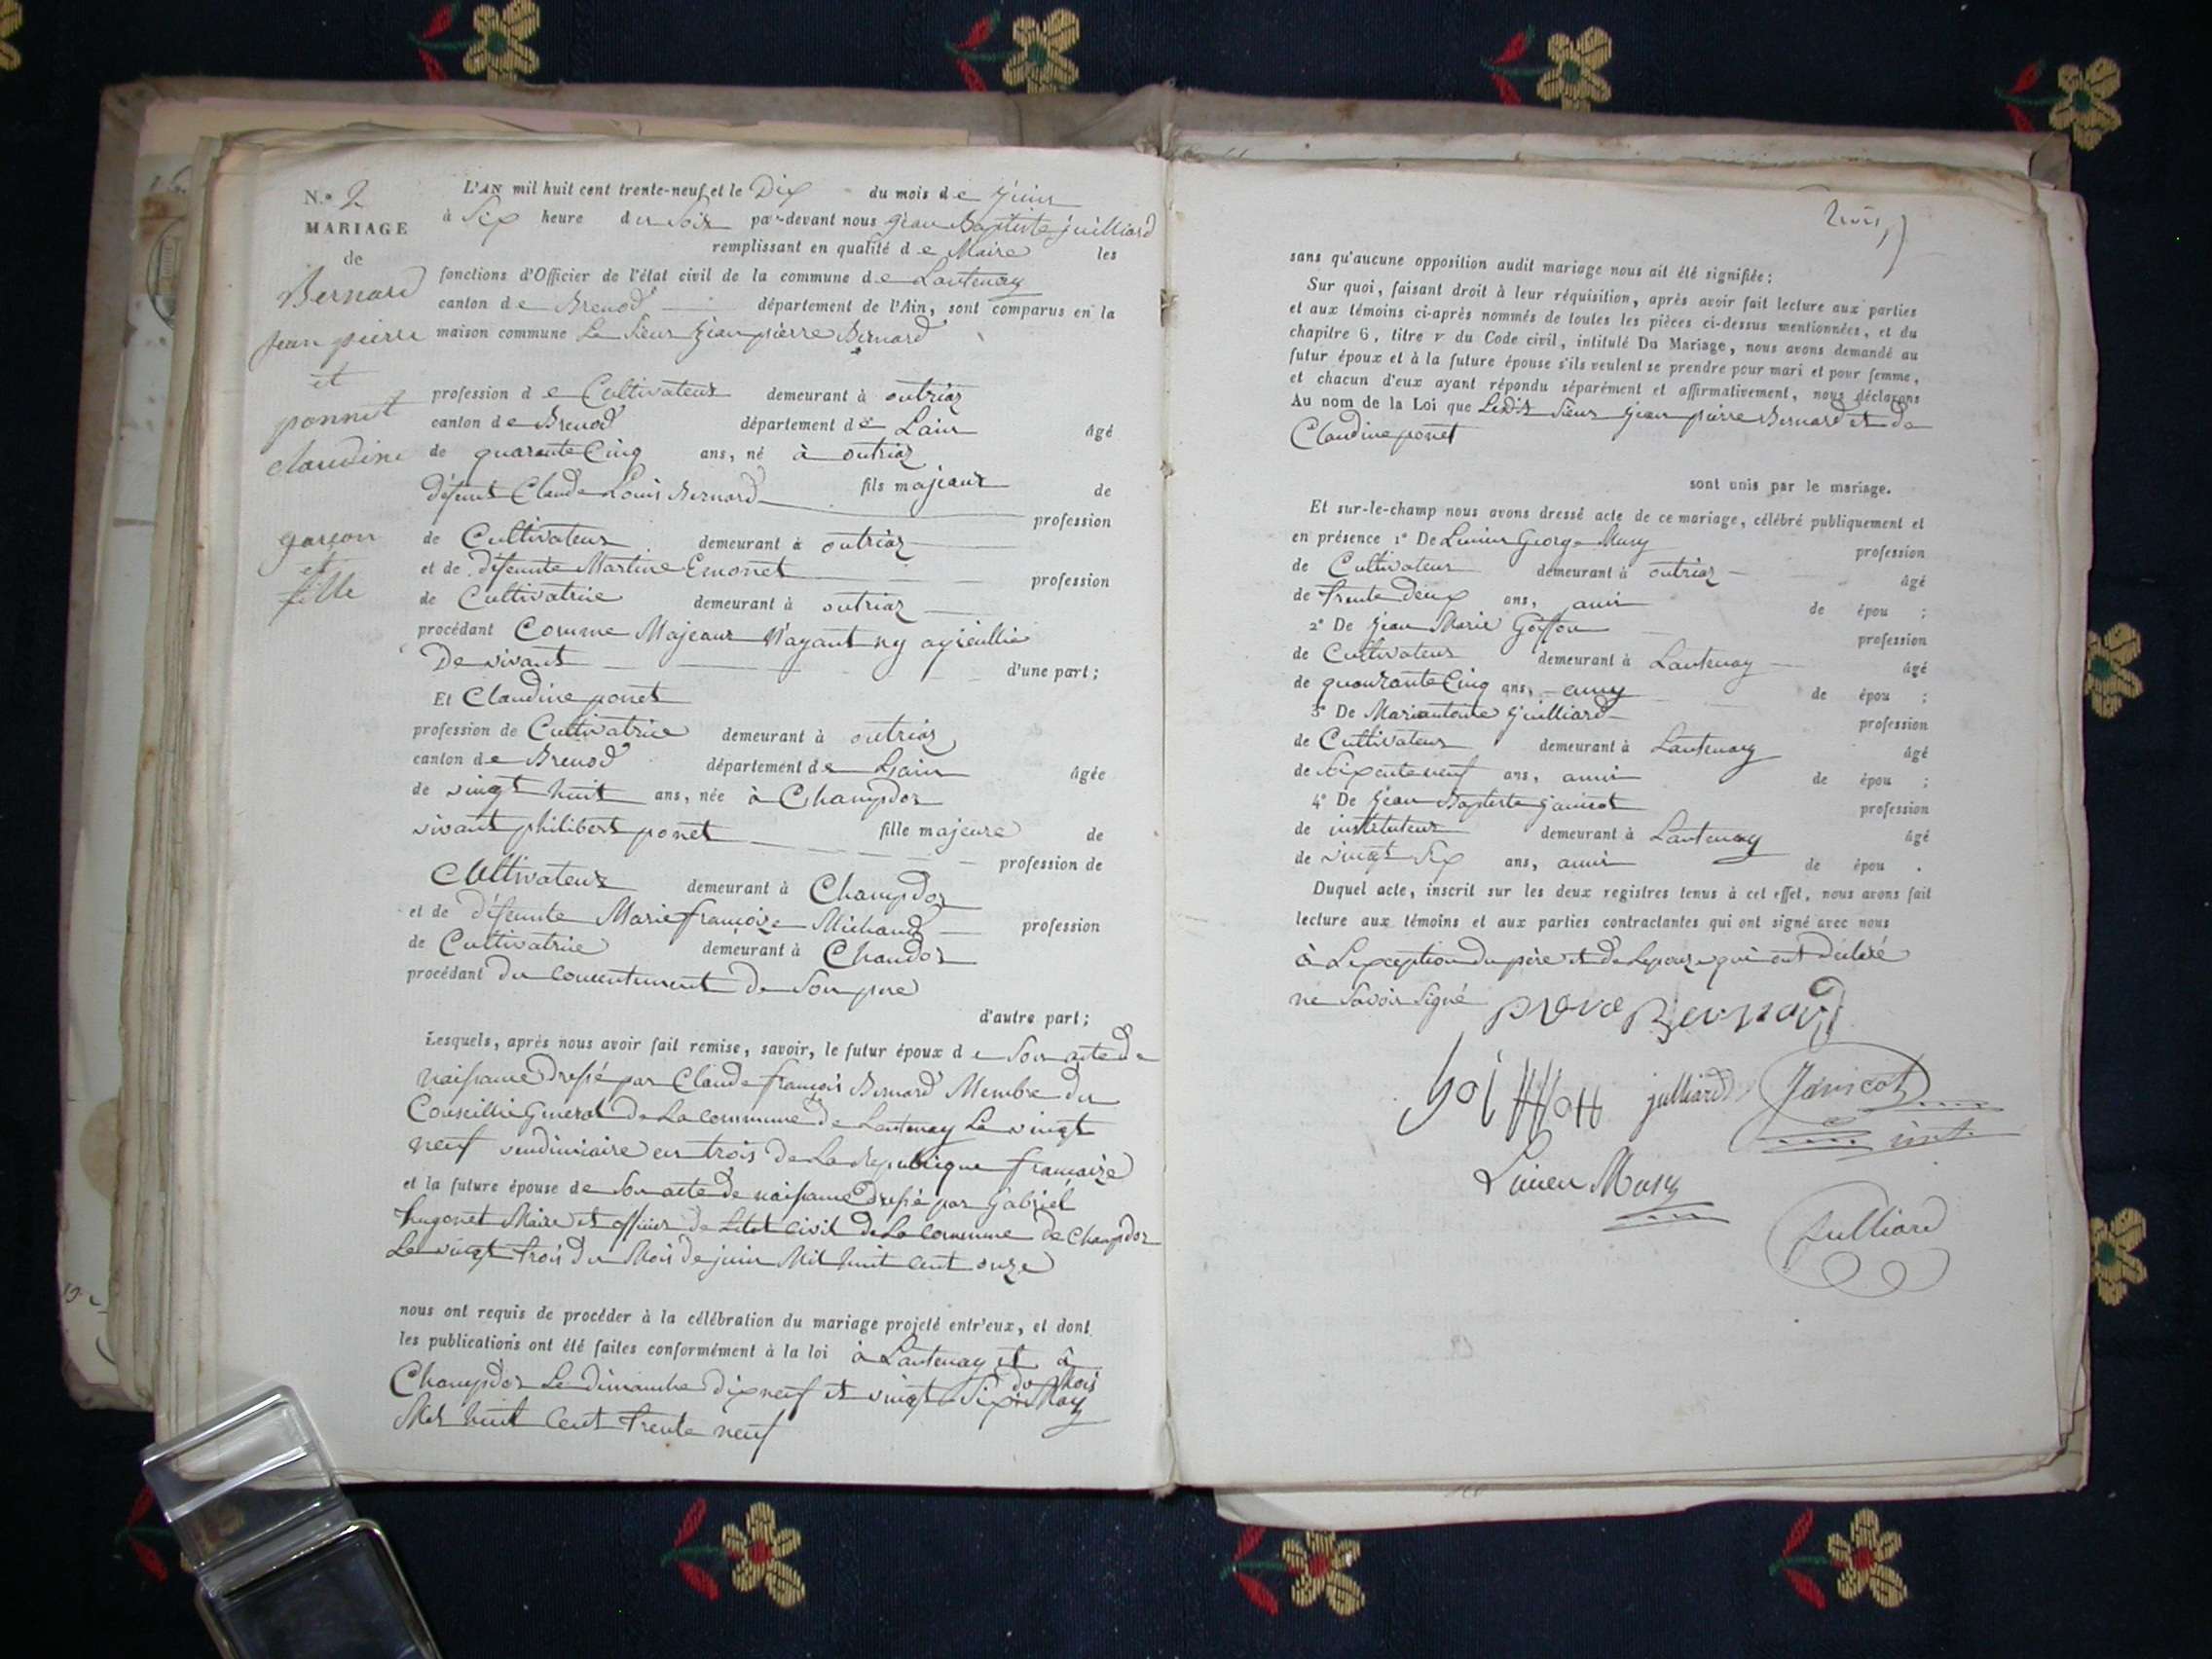 N.º 2
MARIAGE
de
Bernard
Jean pierre
et
ponnet
claudine
garçon
et
fille
L'AN mil huit cent trente-neuf, et le Dix du mois de juin
à Six heure du Soir par-devant nous Jean Baptiste juilliard
remplissant en qualité de Maire les
fonctions d'Officier de l'état civil de la commune de Lantenay
canton de Brenod département de l'Ain, sont comparus en la
maison commune Le Sieur Jean pierre Bernard
profession de Cultivateur demeurant à outriaz
canton de Brenod département de Lain âgé
de quarante Cinq ans, né à outriaz
fils majeur de
défunt Claude Louis Bernard profession
de Cultivateur demeurant à outriaz
et de défunte Martine Emonet profession
de Cultivatrice demeurant à outriaz
procédant Comme Majeaur N'ayant ny ayieullie
De vivant d'une part;
Et Claudine ponet
profession de Cultivatrice demeurant à outriaz
canton de Brenod département de Lain âgée
de vingt huit ans, née à Champdor
fille majeure de
vivant philibert ponet profession de
Cultivateur demeurant à Champdor
et de défunte Marie françoize Michaud profession
de Cultivatrice demeurant à Chandor
procédant du Concentement de Son pere
d'autre part;
Lesquels, après nous avoir fait remise, savoir, le futur époux de Son acte de
Naissance Dressé par Claude françois Bernard Membre du
Conseillie General De La commune de Lantenay Le vingt
neuf vendimiaire en trois De La Republique françaize
et la future épouse de Son acte de naissance dressé par Gabriel
hugonet Maire et officier de Letat Civil de La Commune de Champdor
Le vingt trois du Mois de juin Mil huit cent onze
nous ont requis de procéder à la célébration du mariage projeté entr'eux, et dont
les publications ont été faites conformément à la loi à Lantenay et à
Champdor Le dimanche dix neuf et vingt Six du Mois May
Mil huit Cent trente neuf
trois
sans qu'aucune opposition audit mariage nous ait été signifiée:
Sur quoi, faisant droit à leur réquisition, après avoir fait lecture aux parties
et aux témoins ci-après nommés de toutes les pièces ci-dessus mentionnées, et du
chapitre 6, titre v du Code civil, intitulé Du Mariage, nous avons demandé au
futur époux et à la future épouse s'ils veulent se prendre pour mari et pour femme,
et chacun d'eux ayant répondu séparément et affirmativement, nous déclarons
Au nom de la Loi que Ledit Sieur Jean pierre Bernard et da
Claudine ponet
sont unis par le mariage.
Et sur-le-champ nous avons dressé acte de ce mariage, célébré publiquement et
en présence 1º De Lucien George Mury profession
de Cultivateur demeurant à outriaz âgé
de trente deux ans, amis de épou ;
2º De Jean Marie Goiffon profession
de Cultivateur demeurant à Lantenay âgé
de quourante Cinq ans, amy de épou ;
3º De Mariantoine Juilliard profession
de Cultivateur demeurant à Lantenay âgé
de Soixente neuf ans, amis de épou ;
4º De Jean Baptiste Janicot profession
de instituteur demeurant à Lantenay âgé
de vingt Six ans, amis de épou .
Duquel acte, inscrit sur les deux registres tenus à cet effet, nous avons fait
lecture aux témoins et aux parties contractantes qui ont signé avec nous
à L'exception du père et de Lepouze qui ont déclaré
ne Savoir Signé Bernard
julliard Janicot
inst.
Lucien Mury
Julliard